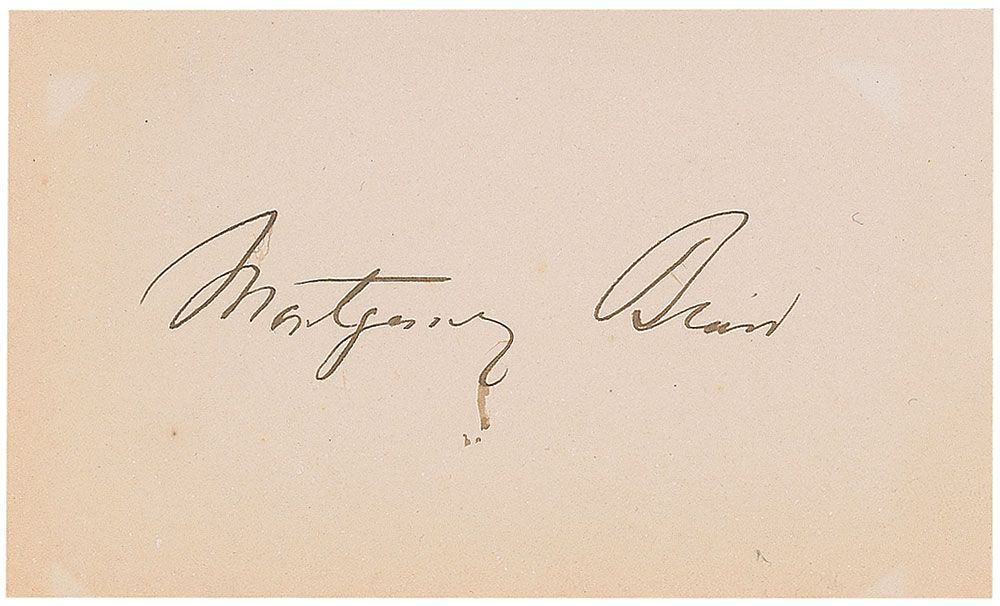 Montgomery Blair